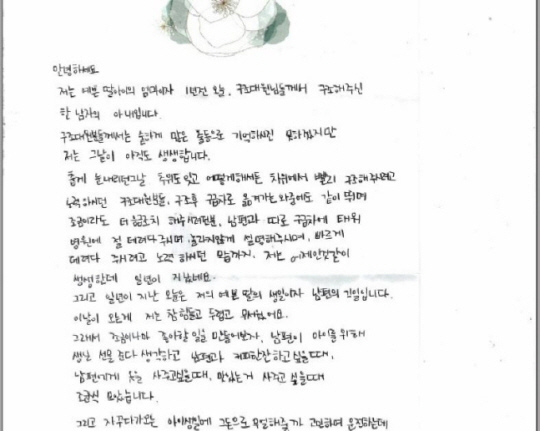 안녕하세요
저는 예쁜 딸아이의 엄마이자 1년전 오늘, 구조대원님들께서 구조해주신
한 남자의 아내입니다.
구조대원분들께서는 수없이 많은 출동으로 기억하시진 못하겠지만
저는 그날이 아직도 생생합니다.
춥게 눈내리던그날 추위도 잊고 어떻게해서든 차위에서 빨리 구조해주시려고
노력하시던 구조대원분들, 구조후 구급차로 옮겨가는와중에도 같이 뛰며
조금이라도 더 해주시려던분, 남편과 따로 구급차에 태워
병원에 절 데려다주시며 놀라지않게 설명해주시며, 빠르게
데려다 주시려고 노력하시던 모습까지. 저는 어제일같이
생생한데 일년이 지났네요.
그리고 일년이 지난 오늘은 저의 예쁜 딸의 생일이자 남편의 기일입니다.
이날이 오는게 저는 참 힘들고 두렵고 무서웠어요.
그래서 조금이나마 좋아할 일을 만들어보자, 남편이 아이를 위해
생일 선물 준다 생각하고 남편과 커피한잔하고싶을때,
남편에게 옷을 사주고싶을때, 맛있는거 사주고 싶을때
조금씩 모았습니다.
그리고 자꾸다가오는 아이생일에 그돈으로 무얼해줄까 고민하며 운전하는데